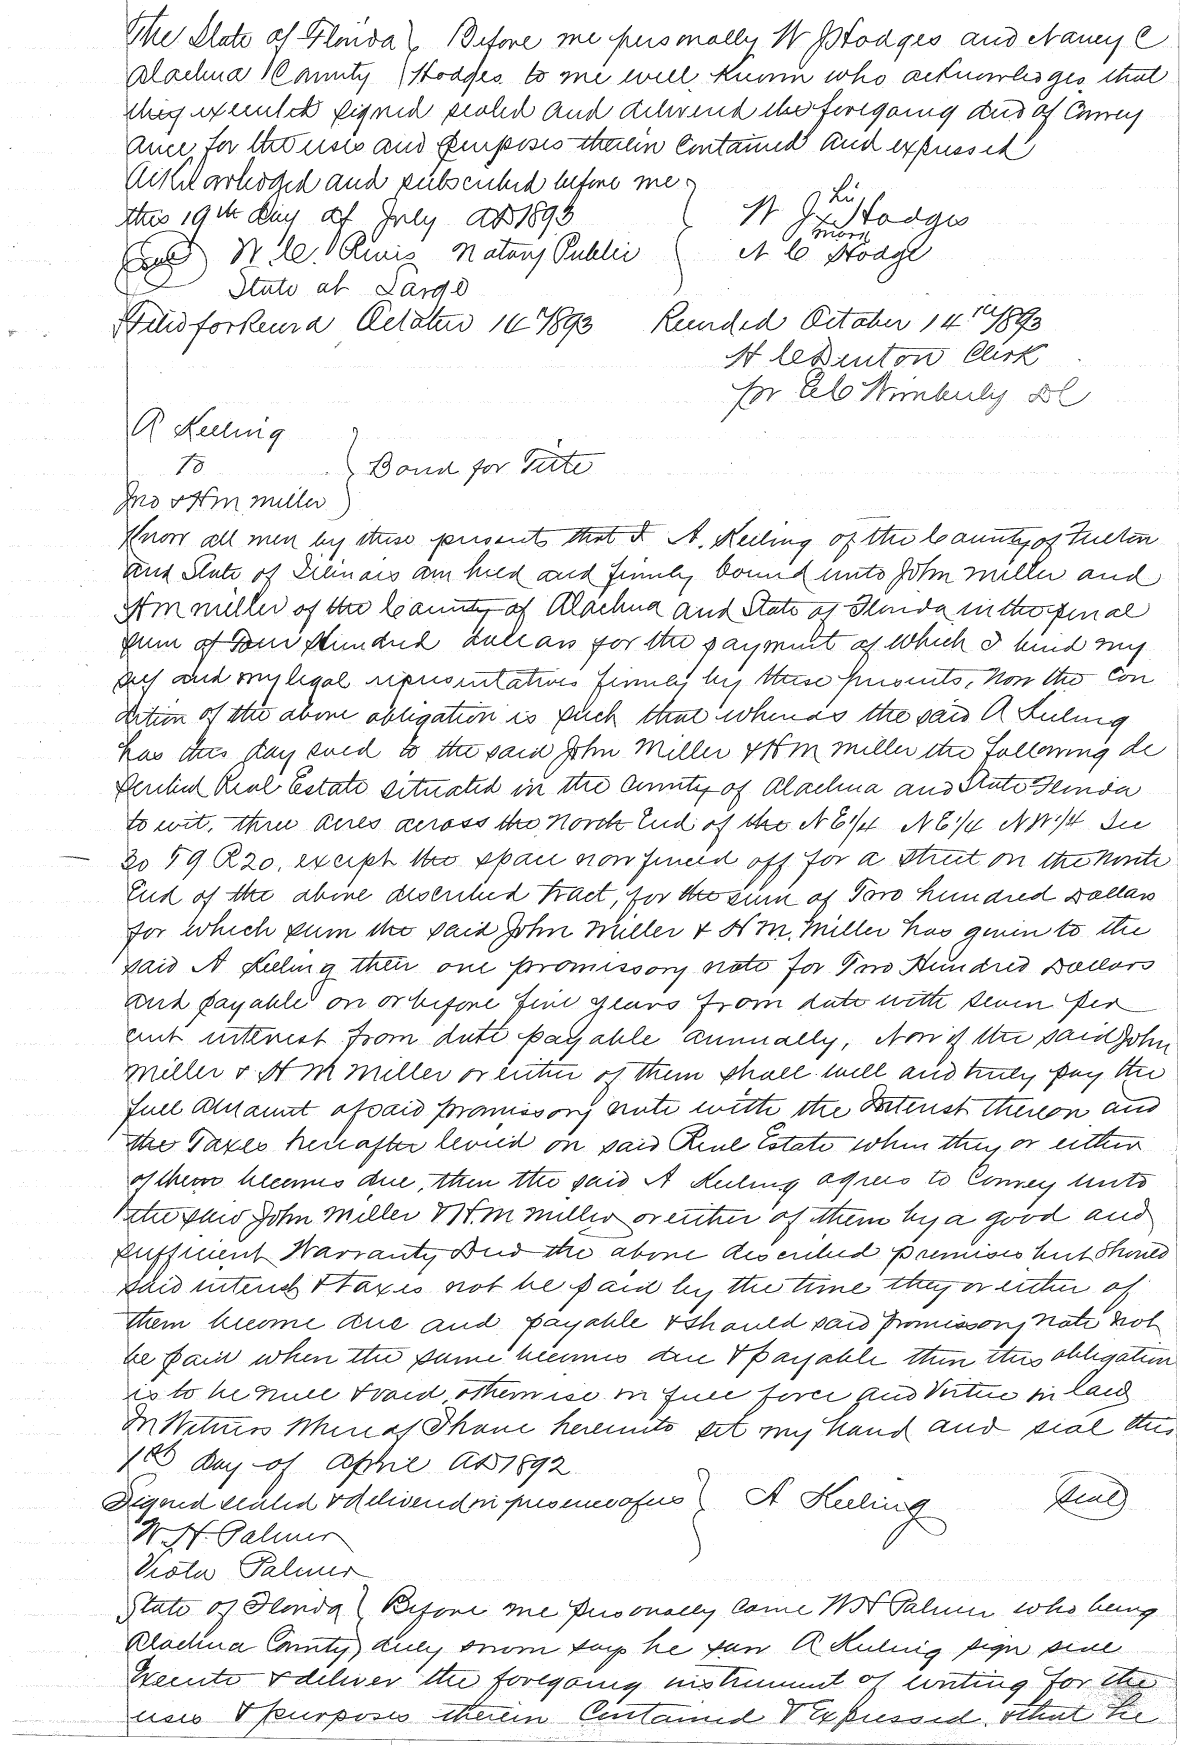 The State of Florida } Before me personally W J Hodges and Nancy C
Alachua County } Hodges to me well known who acknowledges that
they executed signed sealed and delivered the foregoing deed of Convey
ance for the uses and purposes therein Contained and expressed
Acknowledged and subscribed before me
this 19th day of July AD 1893 } W J his x mark Hodges
(Seal) W. C. Notary Public } N C Hodge
State at Large
Filed for Record October 14th 1893 Recorded October 14th 1893
H C Denton Clerk
pr E C Wimberly DC
A Keeling
To } Bond for Title
Jno & H M Miller
Know all men by these presents that I A. Keeling of the County of Fulton
and State of Illinois am held and firmly bound unto John Miller and
H M Miller of the County of Alachua and State of Florida in the penal
sum of Four Hundred dollars for the payment of which I bind my
self and my legal representatives firmly by these presents, Now the Con
dition of the above obligation is such that whereas the said A Keeling
has this day sold to the said John Miller & H M Miller the following de
scribed Real Estate situated in the County of Alachua and State Florida
to wit, three acres across the North End of the NE 1/4 NE 1/4 NW 1/4 Sec
30 T9 R20, except the space now fenced off for a street on the North
End of the above described tract, for the sum of Two hundred Dollars
for which sum the said John Miller & H M. Miller has given to the
said A Keeling their one promissory note for Two Hundred Dollars
and payable on or before five years from date with seven per
cent interest from date payable annually, Now if the said John
Miller & H M Miller or either of them shall well and truly pay the
full amount of said promissory note with the Interest thereon and
the Taxes hereafter levied on said Real Estate when they or either
of them becomes due, then the said A Keeling agrees to Convey unto
the said John Miller & H. M Miller or either of them by a good and
sufficient Warranty Deed the above described premises but should
said interest & taxes not be paid by the time they or either of
them become due and payable & should said promissory note not
be paid when the same becomes due & payable then this obligation
is to be null & void, otherwise in full force and Virtue in law
In Witness Whereof I have hereunto set my hand and seal this
1st day of April AD 1892
Signed sealed & delivered in presence of us } A Keeling (Seal)
W. H. Palmer
Viola Palmer
State of Florida } Before me personally came W H Palmer who being
Alachua County } duly sworn says he saw A Keeling sign seal
Execute & deliver the foregoing instrument of writing for the
uses & purposes therein Contained & Expressed. & that he